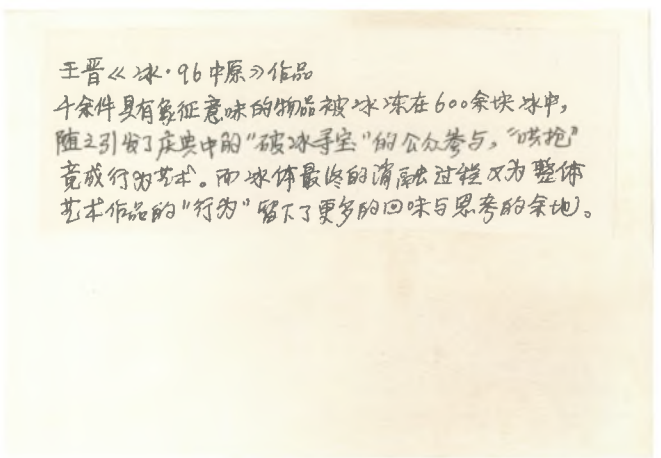 王晋《冰·96中原》作品
千余件具有象征意味的物品被冰冻在600余块冰中，
随之引发了庆典中的“破冰寻宝”的公众参与，“哄抢”
竟成行为艺术。而冰体最终的消融过程又为整体
艺术作品的“行为”留下了更多的回味与思考的余地。